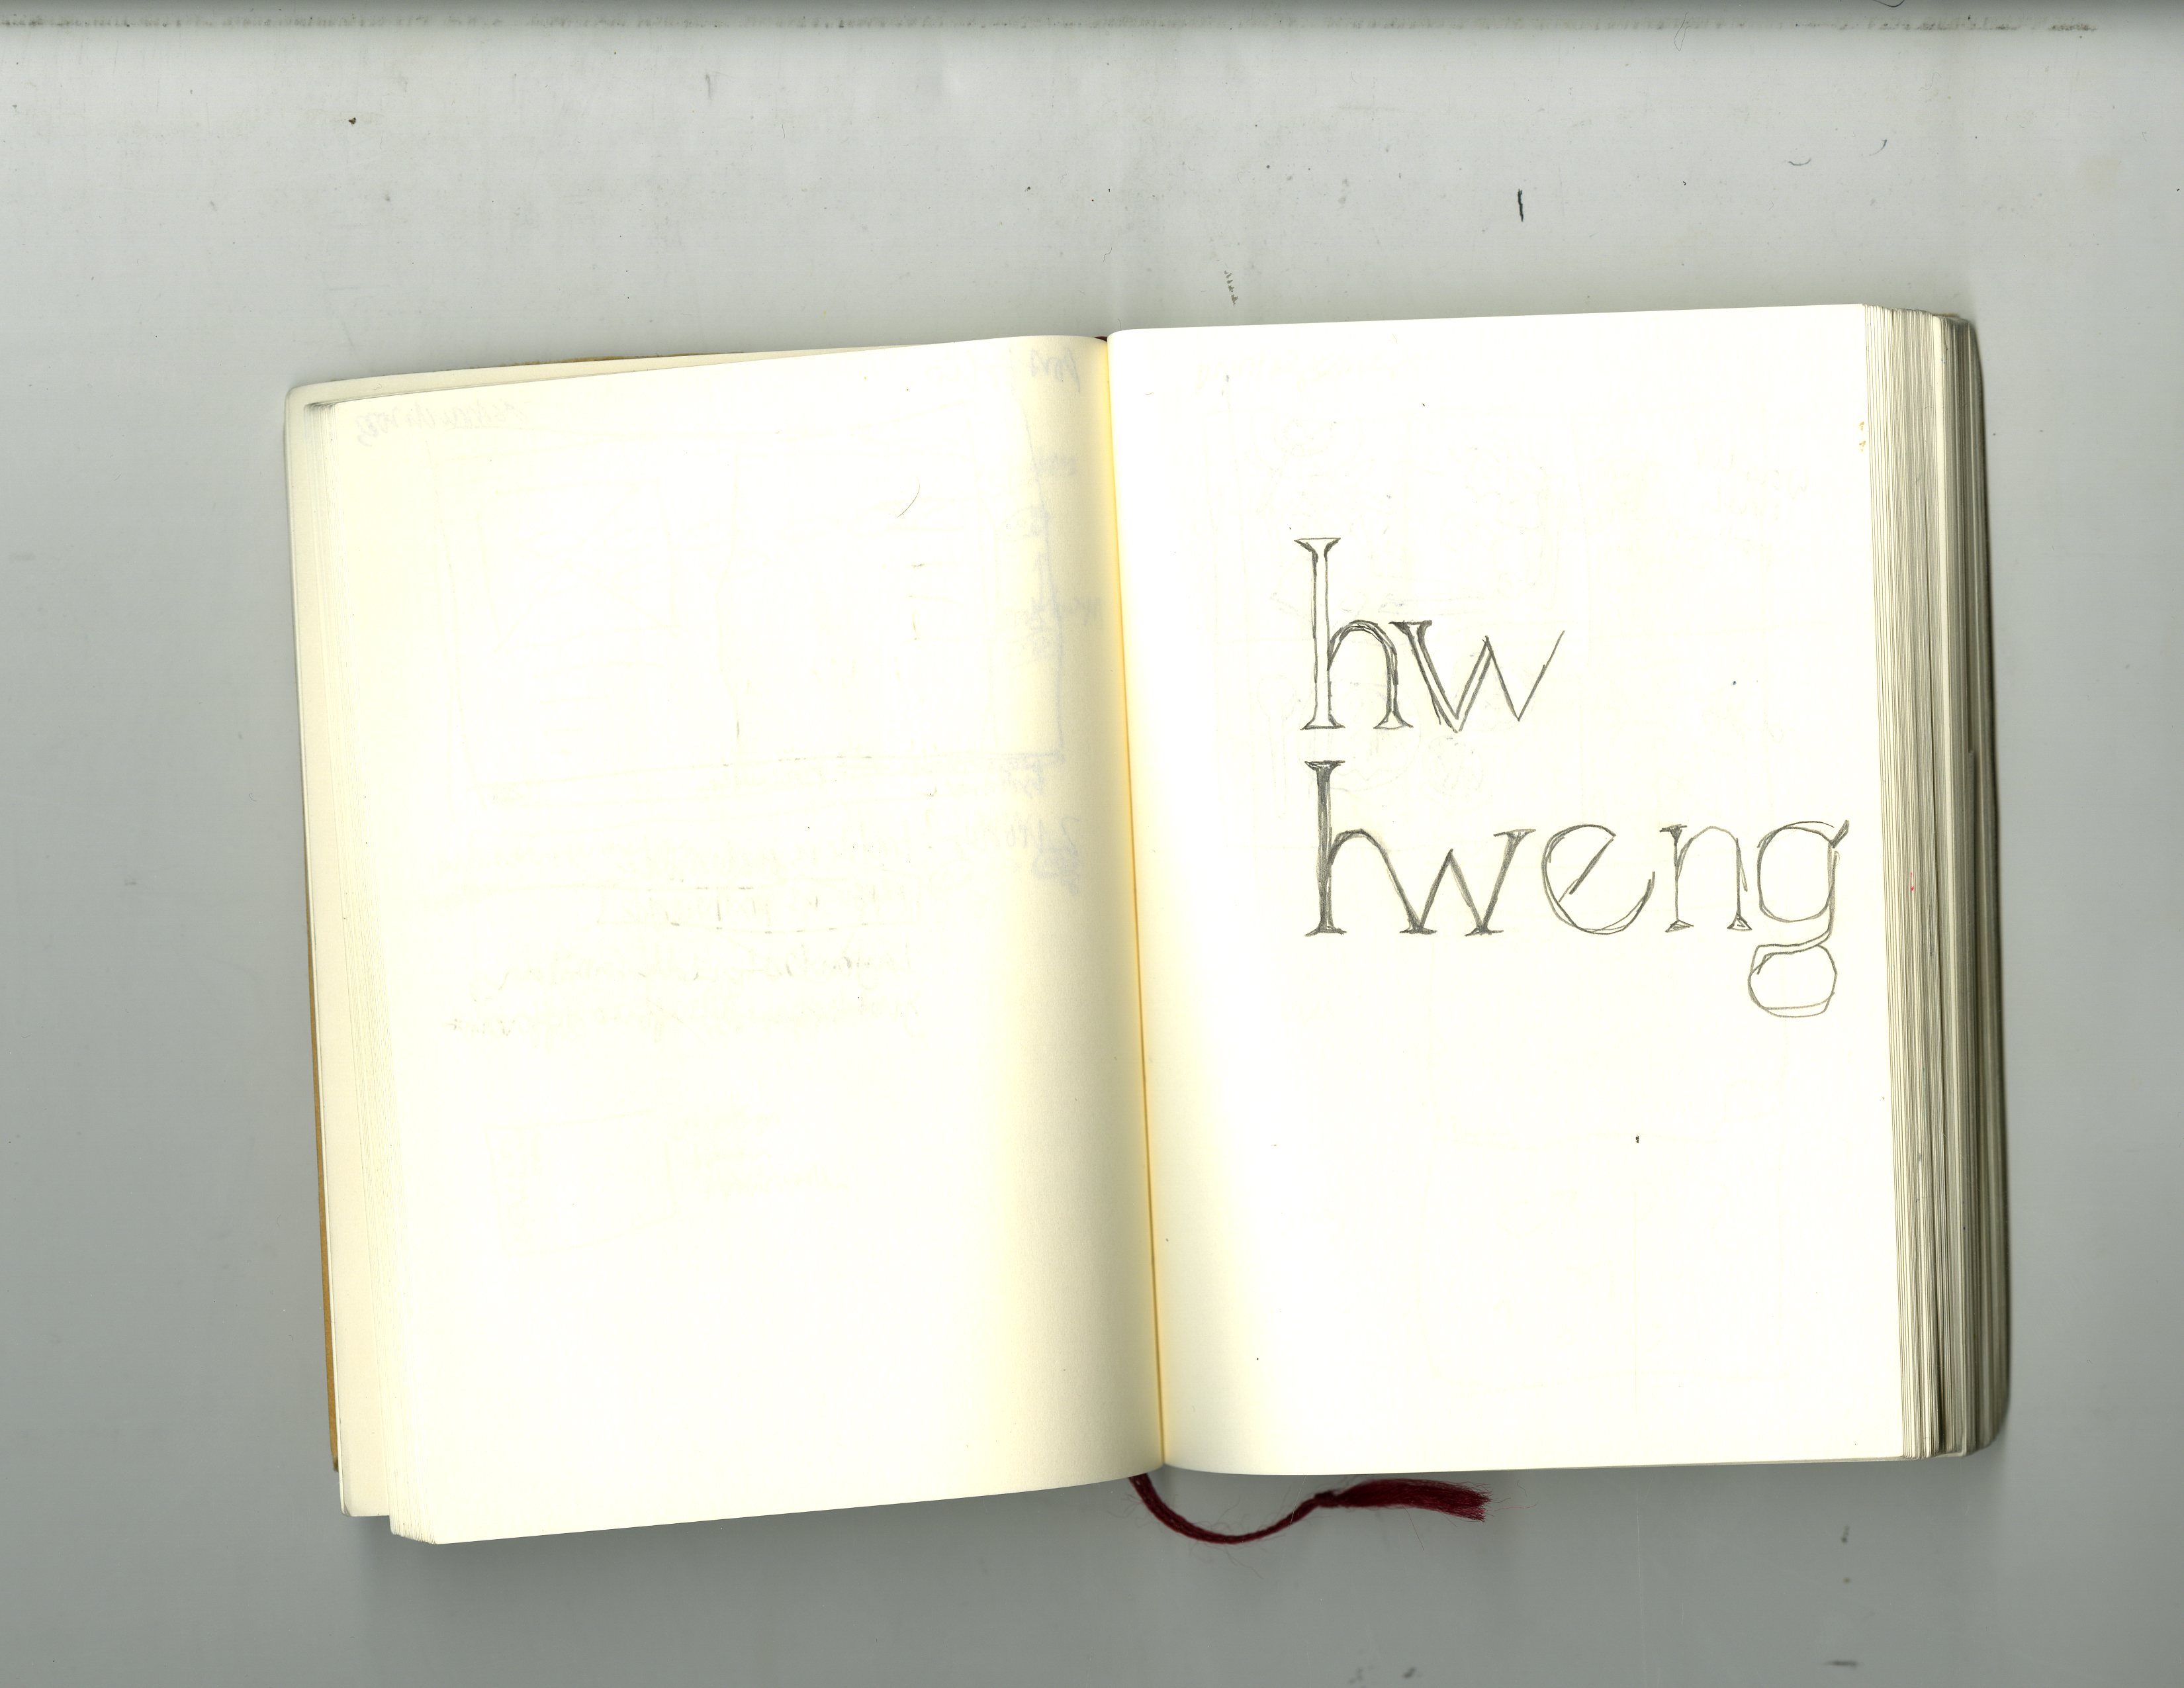 hw
hweng